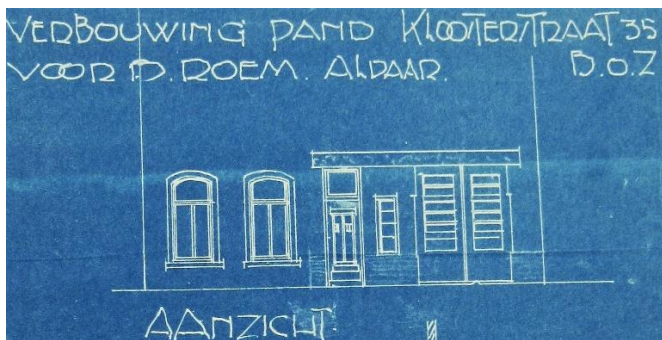 VERBOUWING PAND KLOOSTERSTRAAT 35
VOOR D. ROEM. ALDAAR. B.O.Z
AANZICHT.